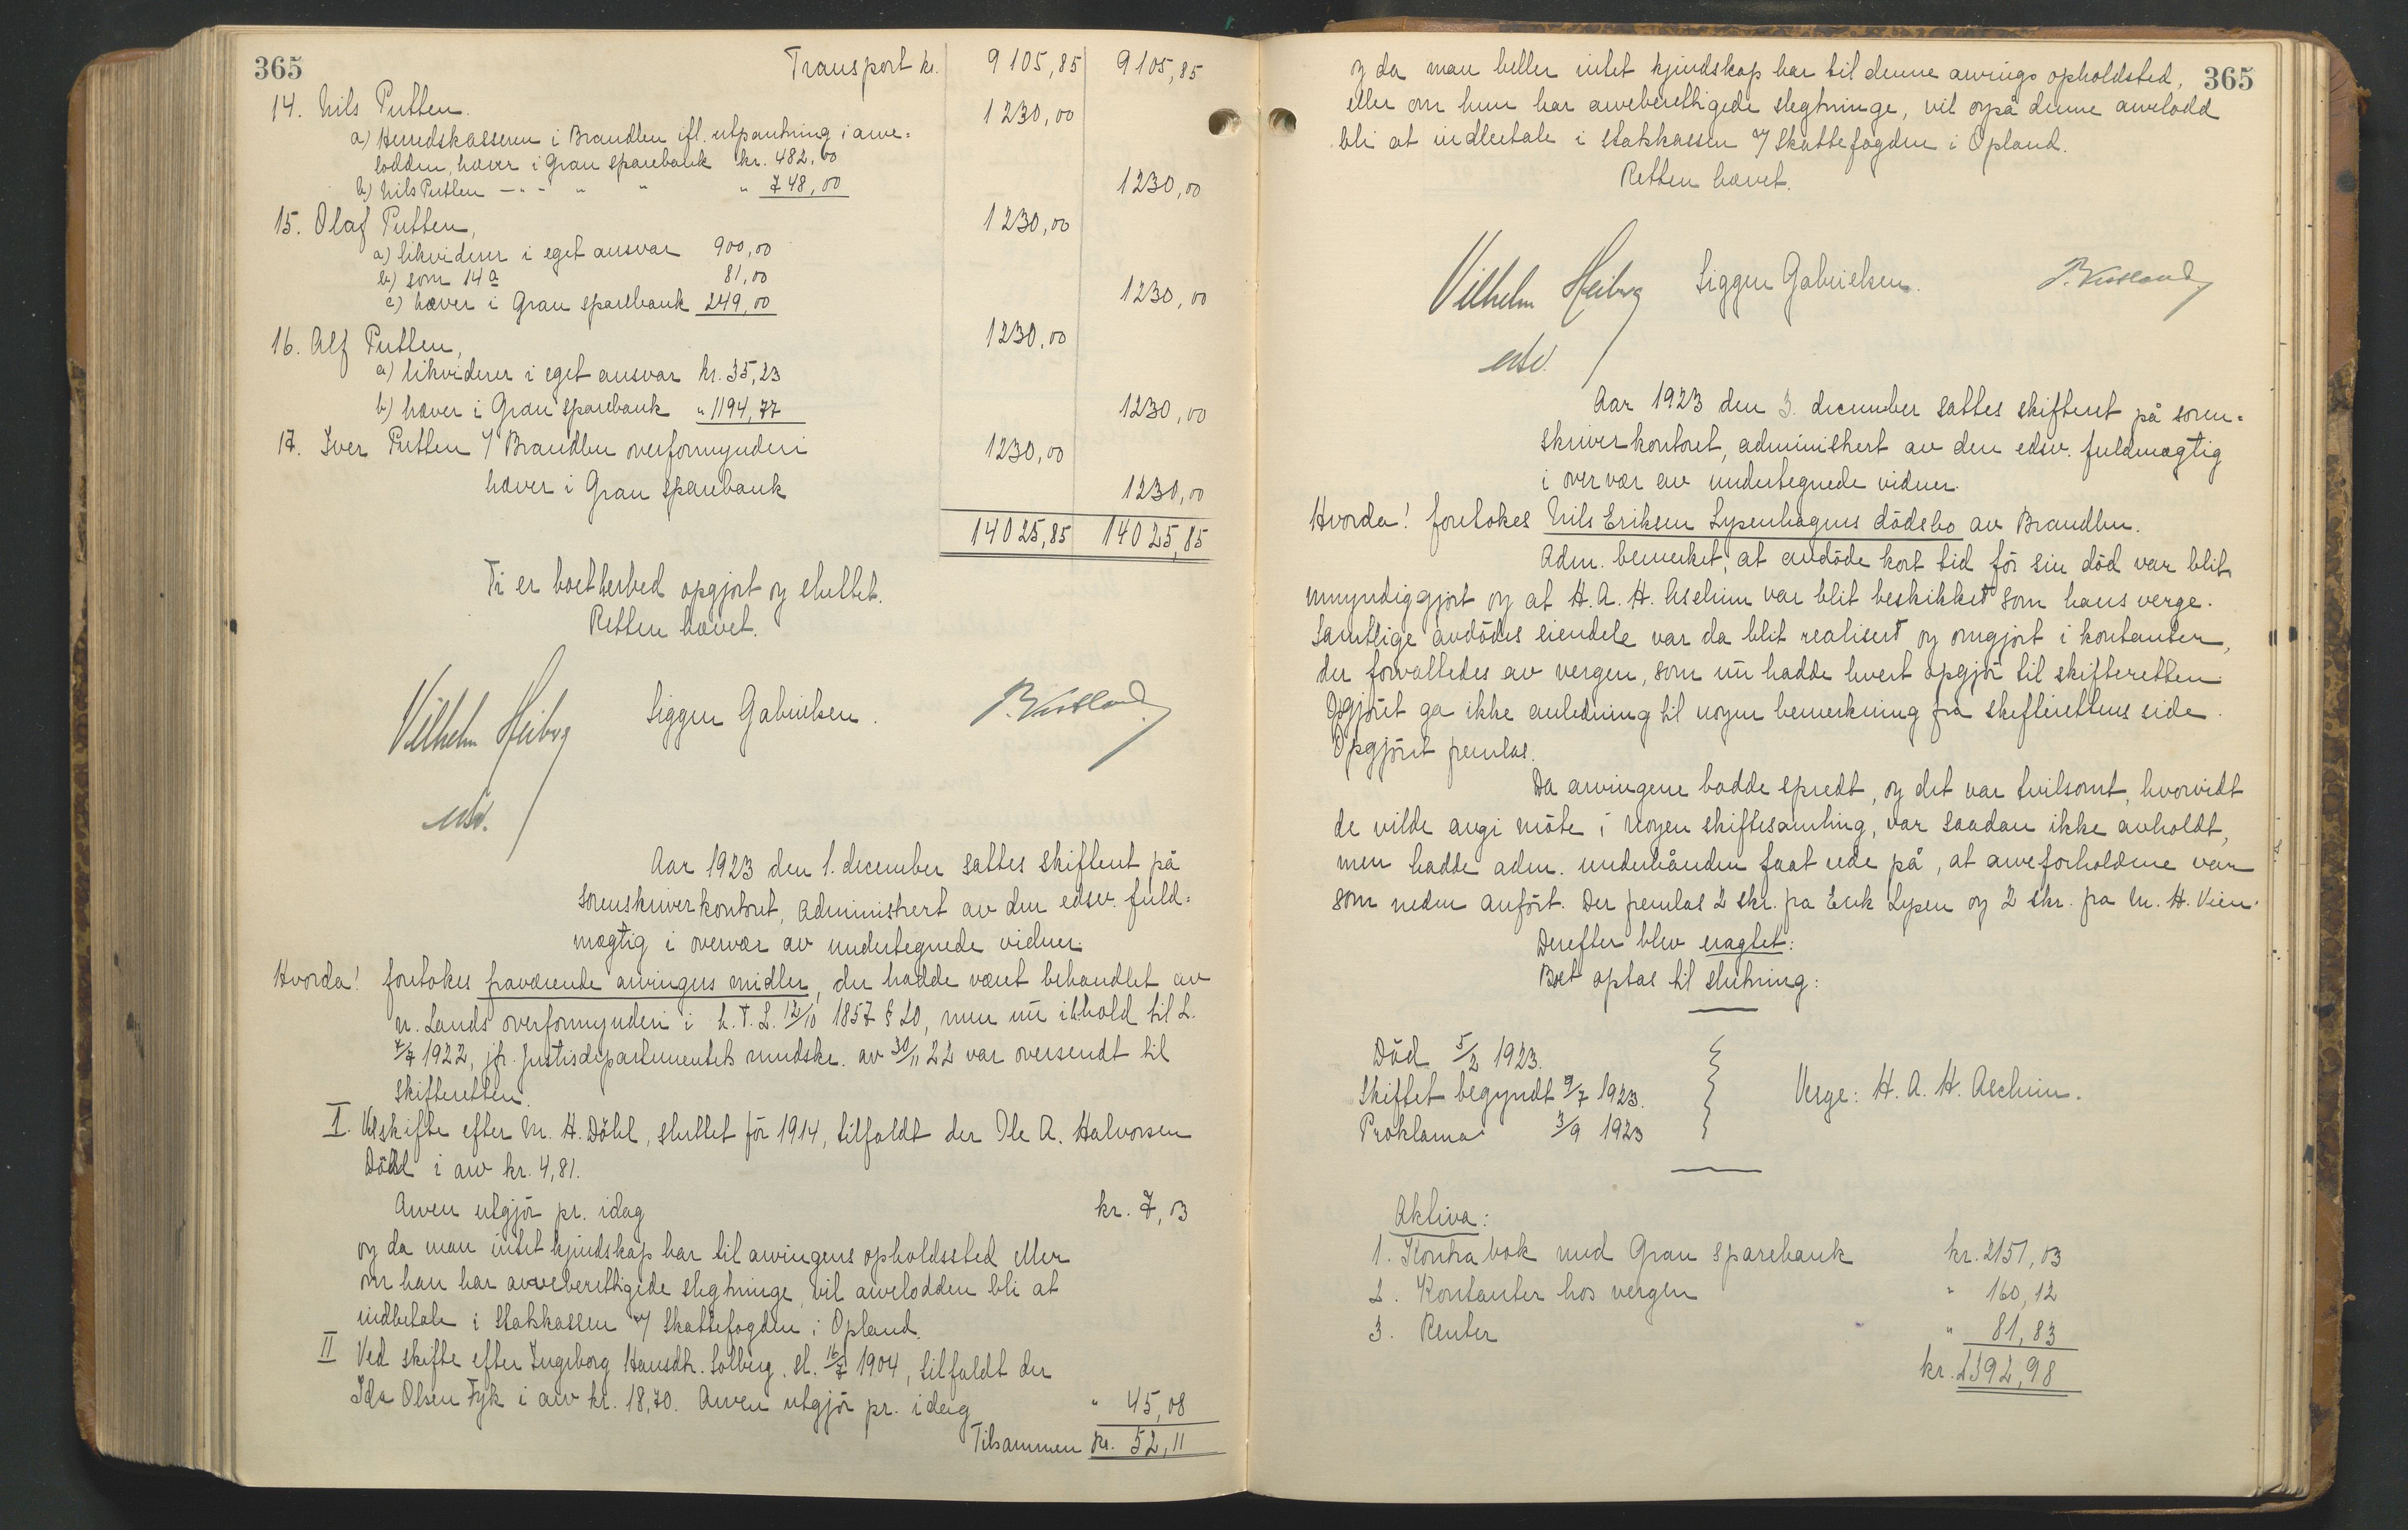 365
Transport kr. 9105,85 9105,85
14. Nils Putten. 1230,00
a) Herredskasseren i Brandbu ifl. utpantning i arve-
lodden, hæver i Gran sparebank kr. 482,00
b) Nils Putten — " - " " " 748,00 1230,00
15. Olaf Putten, 1230,00
a) likviderer i eget ansvar 900,00
b) som 14a 81,00
c) hæver i Gran sparebank 249,00 1230,00
16. Alf Putten, 1230,00
a) likviderer i eget ansvar kr. 35,23
b) hæver i Gran sparebank " 1194,77 1230,00
17. Iver Putten v/ Brandbu overformynderi 1230,00
hæver i Gran sparebank 1230,00
14025,85 14025,85
Ti er boet herved opgjort og sluttet.
Retten hævet.
Vilhelm Heiberg Siggen Gabrielsen.
edsv.
Aar 1923 den 1. december sattes skifteret på
sorenskriverkontoret, administrert av den edsv. fuld-
mægtig i overvær av undertegnede vidner.
Hvorda! foretokes fraværende arvingers midler, der hadde været behandlet av
n. Lands overformynderi i h. t. L. 12/10 1857 § 20, men nu i h.hold til L.
7/7 1922, jfr. Justisdepartementets rundskr. av 30/11 22 var oversendt til
skifteretten.
I. Ved skifte efter M. H. Döhl, sluttet för 1914, tilfaldt der Ole A. Halvorsen
Döhl i arv kr. 4,81.
Arven utgjör pr. idag kr. 7,03
og da man intet kjendskap har til arvingens opholdssted eller
om han har arveberettigede slegtninge, vil arvelodden bli at
indbetale i Statskassen v/ Skattefogden i Opland.
II Ved skifte efter Ingeborg Hansdtr. Solberg, sl. 16/7 1904, tilfaldt der
Ida Olsen Fyk i arv kr. 18,70. Arven utgjör pr. idag " 45,08
Tilsammen kr. 52,11
og da man heller intet kjendskap har til denne arvings opholdsted, 365
eller om hun har arveberettigede slegtninge, vil også denne arvelodd
bli at indbetale i statskassen v/ Skattefogden i Opland.
Retten hævet.
Vilhelm Heiberg Siggen Gabrielsen.
edsv.
Aar 1923 den 3. december sattes skifteret på soren-
skriverkontoret, administrert av den edsv. fuldmægtig
i overvær av undertegnede vidner.
Hvorda! foretokes Nils Eriksen Lysenhagens dödsbo av Brandbu.
Adm. bemerket, at avdöde kort tid för sin död var blit
umyndiggjort og at H. A. H. Aschim var blit beskikket som hans verge.
Samtlige avdödes eiendele var da blit realisert og omgjort i kontanter,
der forvaltedes av vergen, som nu hadde levert opgjör til skifteretten.
Opgjöret ga ikke anledning til nogen bemerkning fra skifterettens side.
Opgjöret fremlas.
Da arvingene bodde spredt, og det var tvilsomt, hvorvidt
de vilde avgi möte i nogen skiftesamling, var saadan ikke avholdt,
men hadde adm. underhånden faat rede på, at arveforholdene var
som neden anfört. Der fremlas 2 skr. fra Erik Lysen og 2 skr. fra M. H. Vien.
Derefter blev eragtet:
Boet optas til slutning:
Död 5/2 1923.
Skiftet begyndt 9/7 1923. Verge: H. A. H. Aschim.
Proklama 3/9 1923
Aktiva:
1. Kontrabok med Gran sparebank kr. 2151,03
2. Kontanter hos vergen " 160,12
3. Renter " 81,83
kr. 2392,98